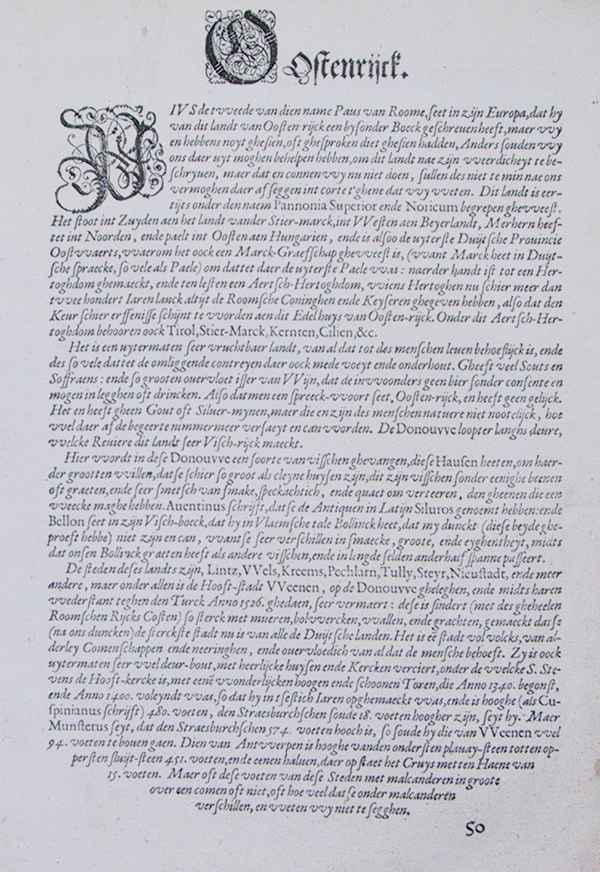 Oostenrijck.
PIVS de tvveede van dien name Paus van Roome, seet in zijn Europa, dat hy
van dit landt van Oosten rijck een bysonder Boeck geschreuen heeft, maer vvy
en hebbens noyt ghesien, oft ghesproken diet ghesien hadden, Anders souden vvy
ons daer uyt moghen behelpen hebben, om dit landt nae zijn vveerdicheyt te be-
schryuen, maer dat en connen vvy nu niet doen, sullen des niet te min nae ons
vermoghen daer af seggen int corte t'ghene dat vvy vveten. Dit landt is eer-
tijts onder den naem Pannonia Superior ende Noricum begrepen ghevveest.
Het stoot int Zuyden aen het landt vander Stier-marck, int VVesten aen Beyerlandt, Merhern heef-
tet int Noorden, ende paelt int Oosten aen Hungarien, ende is alsoo de uyterste Duijtsche Prouincie
Oostvvaerts, vvaerom het oock een Marck-Graefschap ghevveest is, (vvant Marck heet in Duijt-
sche spraecke, so vele als Paele) om dattet daer de uyterste Paele vvas: naerder handt ist tot een Her-
toghdom ghemaeckt, ende ten lesten een Aertsch-Hertoghdom, vviens Herthogen nu schier meer dan
tvvee hondert Iaren lanck altijt de Roomsche Coninghen ende Keyseren ghegeven hebben, also dat den
Keur schier erffenisse schijnt te vvorden aen dit Edel huys van Oosten-rijck. Onder dit Aertsch-Her-
toghdom behooren oock Tirol, Stier-Marck, Kernten, Cilien, &c.
Het is een uytermaten seer vruchtbaer landt, van al dat tot des menschen leuen behoeflijck is, ende
des so vele dattet de omliggende contreyen daer oock mede voeyt ende onderhout. Gheeft veel Souts en
Soffraens: ende so grooten overvloet isser van VVijn, dat de invvoonders geen bier sonder consente en
mogen in legghen oft drincken. Also dat men een spreeck-vvoort seet, Oosten-rijck, en heeft geen gelijck.
Het en heeft gheen Gout oft Siluer-mynen, maer die en zijn des menschen natuere niet nootelijck, hoe
vvel daer af de begeerte nimmermeer versaeyt en can vvorden. De Donouvve loopter langhs deure,
vvelcke Reuiere dit landt seer Visch-rijck maeckt.
Hier vvordt in dese Donouvve een soorte van visschen ghevangen, diese Hausen heeten, om haer-
der grootten vvillen, datse schier so groot als cleyne huysen zijn, dit zijn visschen sonder eenighe beenen
oft graeten, ende seer smetsch van smake, speckachtich, ende quaet om verteeren, den gheenen die een
vveecke maghe hebben. Auentinus schrijft, datse de Antiquen in Latijn Siluros genoemt hebben: ende
Bellon seet in zijn Visch-boeck, dat hy in Vlaemsche tale Bollinck heet, dat my dunckt (diese beyde ghe-
proeft hebbe) niet zijn en can, vvant se seer verschillen in smaecke, groote, ende eyghentheyt, midts
dat onsen Bollinck graeten heeft als andere visschen, ende in lengde selden anderhalf spanne passeert.
De steden deses landts zijn, Lintz, VVels, Kreems, Pechlarn, Tully, Steyr, Nieustadt, ende meer
andere, maer onder allen is de Hooft-stadt VVeenen, op de Donouvve gheleghen, ende midts haren
vvederstant teghen den Turck Anno 1526. ghedaen, seer vermaert: dese is sindert (met des gheheelen
Roomschen Rijcks Costen) so sterck met mueren, bolvvercken, vvallen, ende grachten, gemaeckt datse
(na ons duncken) de sterckste stadt nu is van alle de Duijtsche landen. Het is eē stadt vol volcks, van al-
derley Comenschappen ende neeringhen, ende overvloedich van al dat de mensche behoeft. Zy is oock
uytermaten seer vvel deur-bout, met heerlijcke huysen ende Kercken verciert, onder de vvelcke S. Ste-
vens de Hooft-kercke is, met eenē vvonderlijcken hoogen ende schoonen Toren, die Anno 1340. begonst,
ende Anno 1400. voleyndt vvas, so dat hy in tsestich Iaren opghemaeckt vvas, ende is hooghe (als Cu-
spinianus schrijft) 480. voeten, den Straesburchschen soude 18. voeten hoogher zijn, seyt hy. Maer
Munsterus seyt, dat den Straesburchschen 574. voeten hooch is, so soude hy die van VVeenen vvel
94. voeten te bouen gaen. Dien van Antvverpen is hooghe vanden ondersten plauay-steen totten op-
persten sluijt-steen 451. voeten, ende eenen haluen, daer op staet het Cruys metten Haene van
15. voeten. Maer oft dese voeten van dese Steden met malcanderen in groote
over een comen oft niet, oft hoe veel datse onder malcanderen
verschillen, en vveten vvy niet te segghen.
50